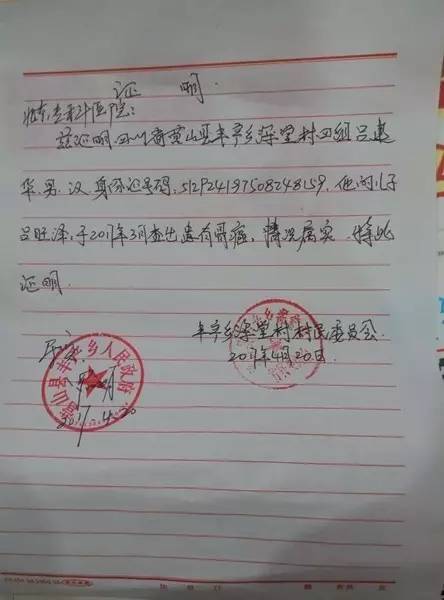 证明
北京专科医院：
兹证明四川省营山县丰产乡深堂村四组吕建
华、男、汉、身份证号码：512924197508248159，他的儿子
吕旺泽，于2017年3月查出患有骨癌，情况属实，特此
证明.
丰产乡深堂村村民委员会
2017年4月20日.
属实
营山县丰产乡人民政府
2017.4.20